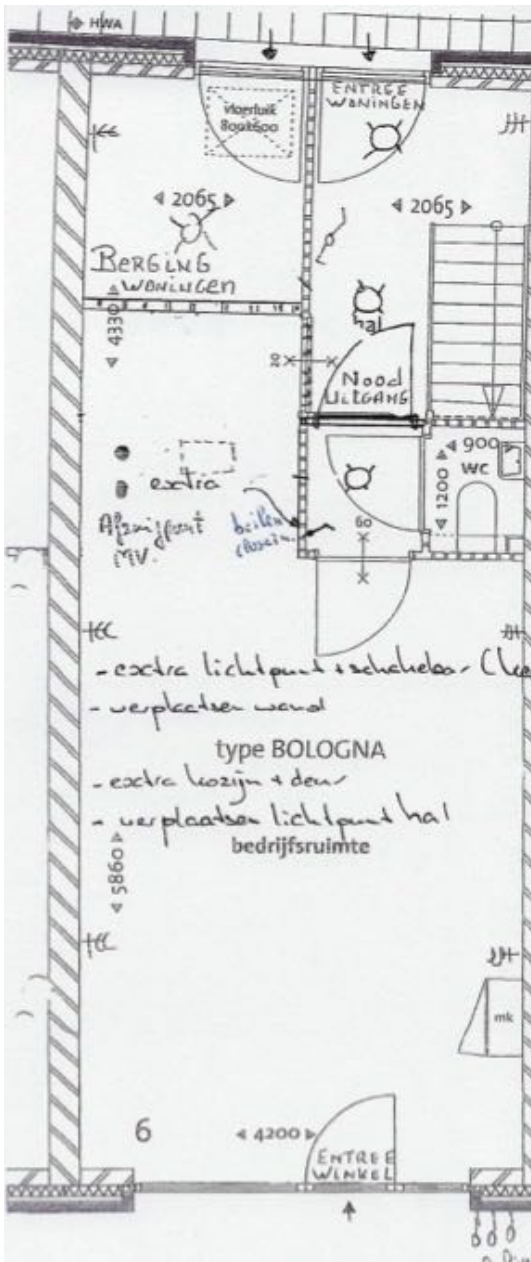 HWA
vloerluik
800x600
ENTREE
WONINGEN
2065
2065
BERGING
WONINGEN
4330
hal
20
Nood
UITGANG
900
WC
1200
extra
Afzuigpunt
MV.
buiten
60
- extra lichtpunt + schakelaar
- verplaatsen wand
type BOLOGNA
- extra kozijn + deur
- verplaatsen lichtpunt hal
bedrijfsruimte
5860
mk
6
4200
ENTREE
WINKEL